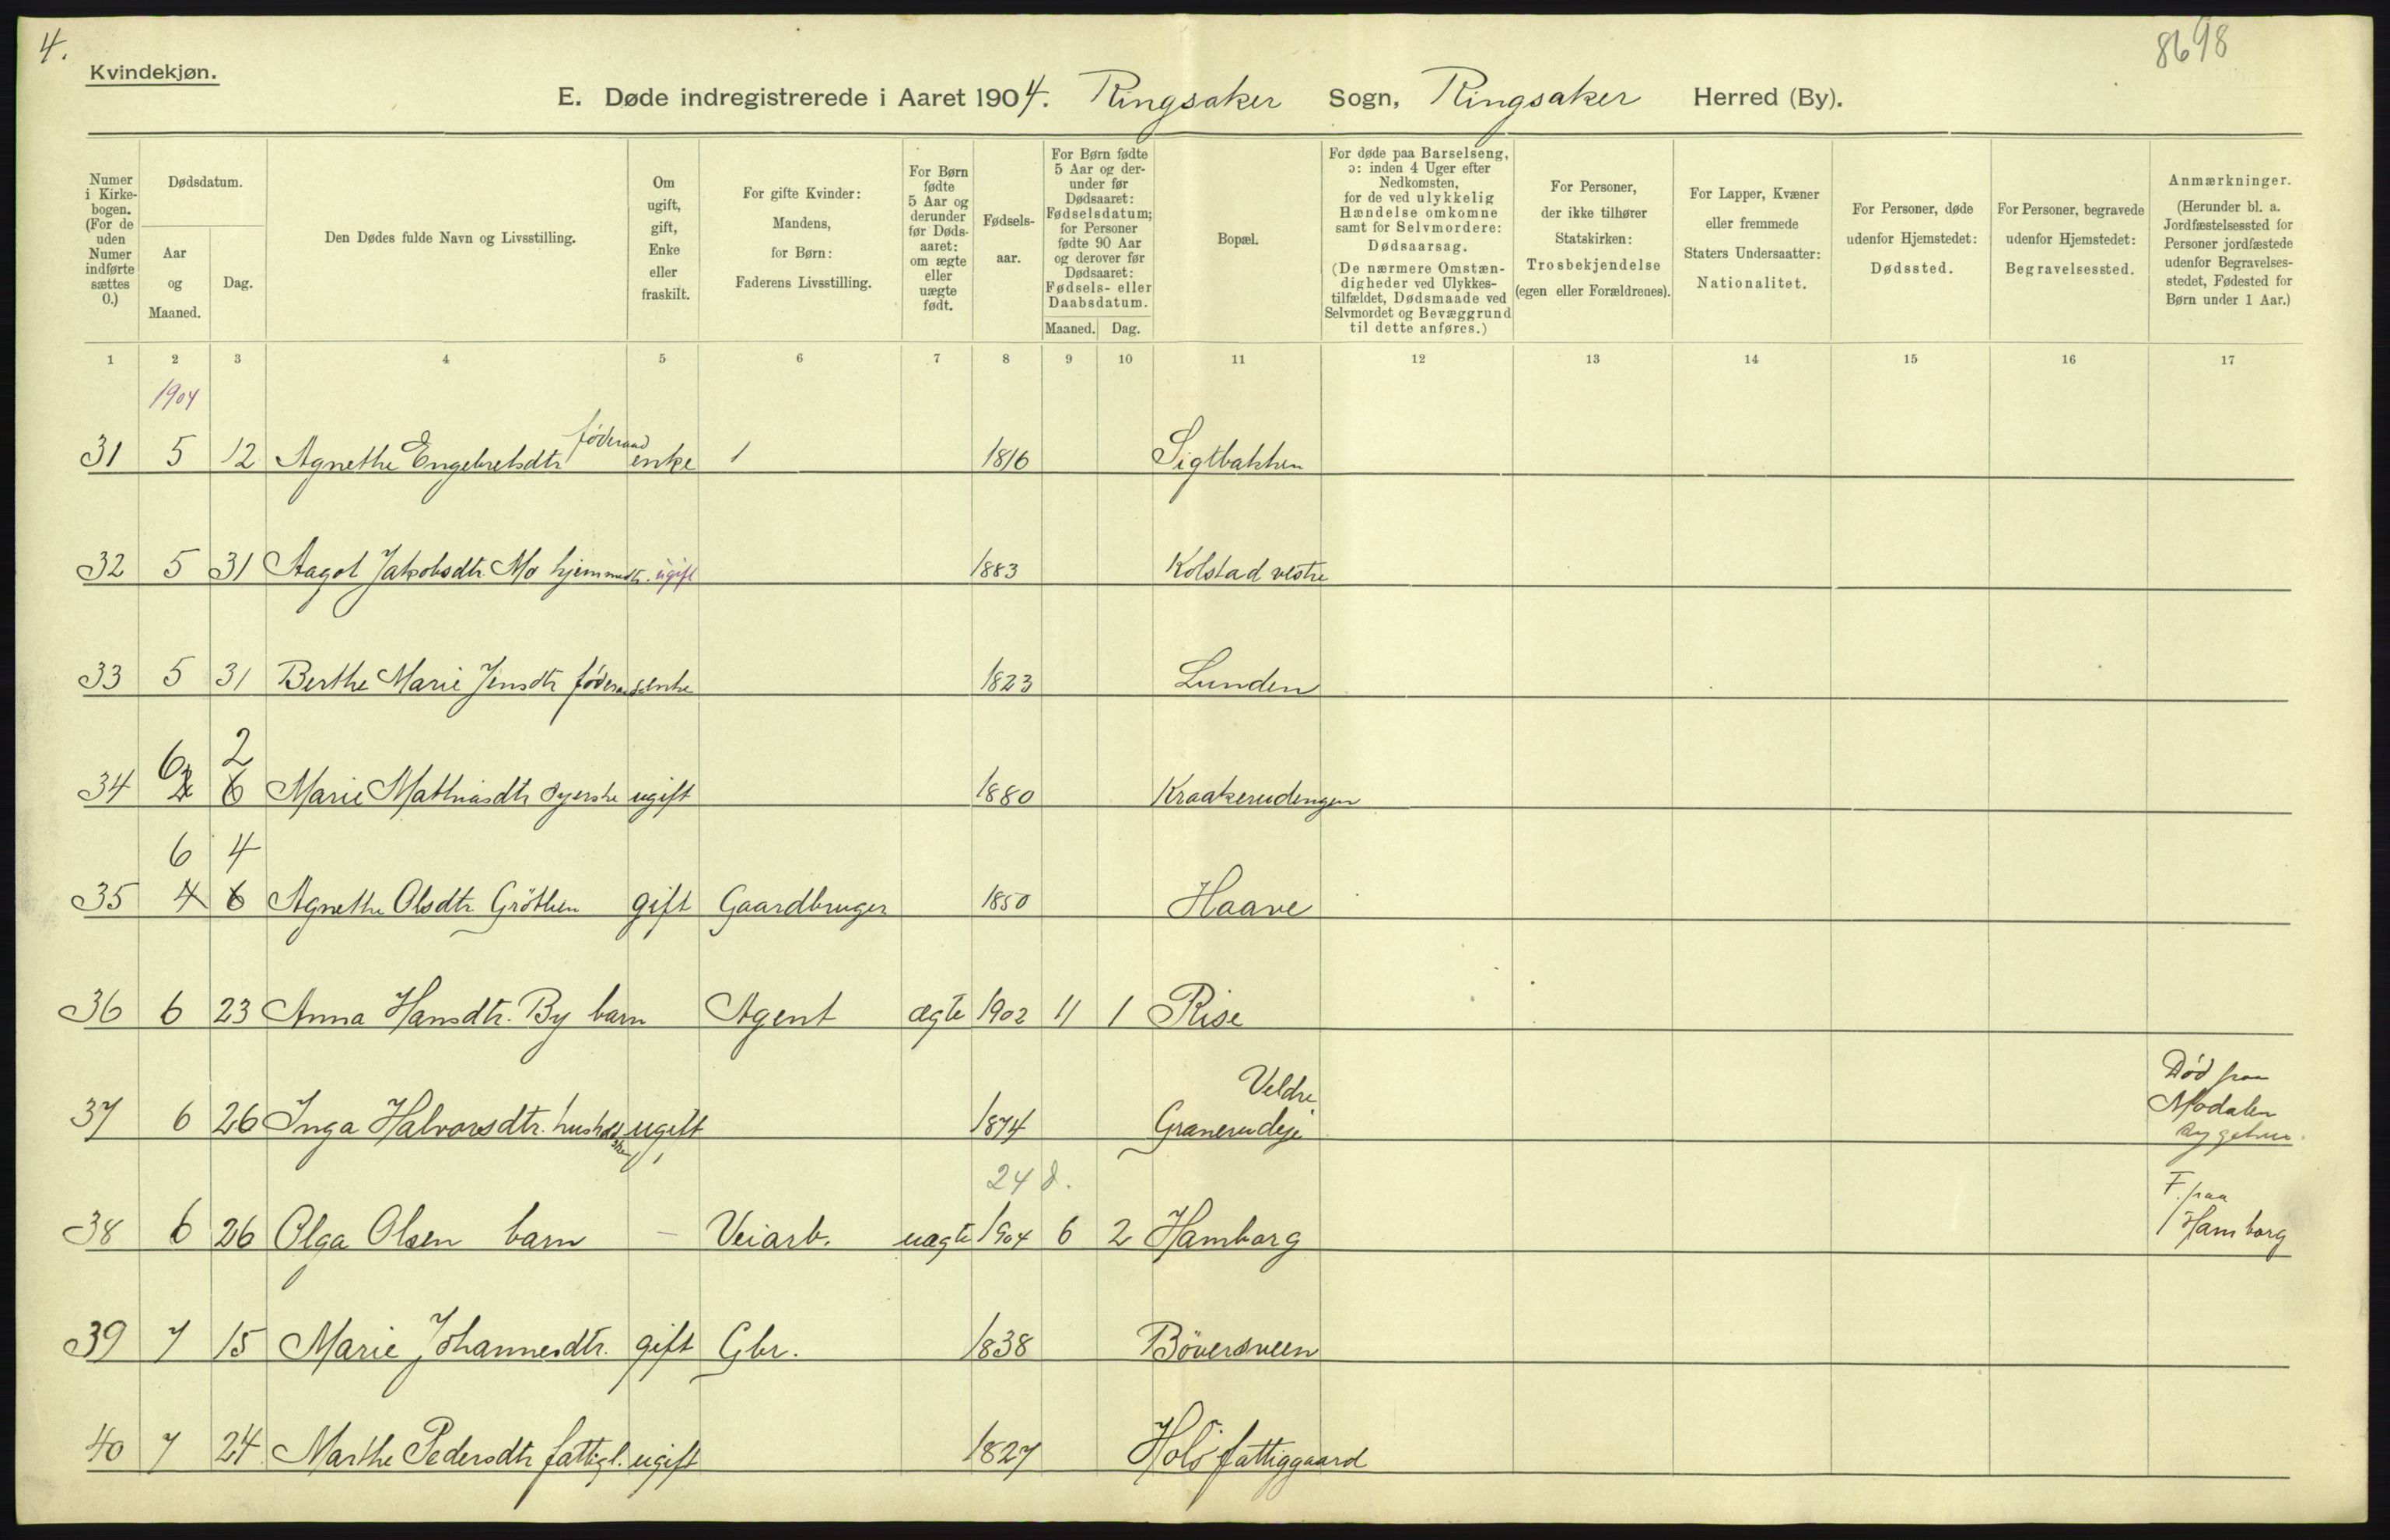 4.
8698
Kvindekjøn.
E. Døde indregistrerede i Aaret 1904. Ringsaker Sogn, Ringsaker Herred (By).
Numer i Kirke-bogen. (For de uden Numer indførte sættes 0.)
Dødsdatum.
Aar og Maaned.
Dag.
Den Dødes fulde Navn og Livsstilling.
Om ugift, gift, Enke eller fraskilt.
For gifte Kvinder: Mandens, for Børn: Faderens Livsstilling.
For Børn fødte 5 Aar og derunder før Døds-aaret: om ægte eller uægte født.
Fødsels-aar.
For Børn fødte 5 Aar og der-under før Dødsaaret: Fødselsdatum; for Personer fødte 90 Aar og derover før Dødsaaret: Fødsels- eller Daabsdatum.
Maaned. Dag.
Bopæl.
For døde paa Barselseng, ɔ: inden 4 Uger efter Nedkomsten, for de ved ulykkelig Hændelse omkomne samt for Selvmordere: Dødsaarsag. (De nærmere Omstæn-digheder ved Ulykkes-tilfældet, Dødsmaade ved Selvmordet og Bevæggrund til dette anføres.)
For Personer, der ikke tilhører Statskirken: Trosbekjendelse (egen eller Forældrenes).
For Lapper, Kvæner eller fremmede Staters Undersaatter: Nationalitet.
For Personer, døde udenfor Hjemstedet: Dødssted.
For Personer, begravede udenfor Hjemstedet: Begravelsessted.
Anmærkninger. (Herunder bl. a. Jordfæstelsessted for Personer jordfæstede udenfor Begravelses-stedet, Fødested for Børn under 1 Aar.)
1 2 3 4 5 6 7 8 9 10 11 12 13 14 15 16 17
1904
31 5 12 Agnethe Engebretsdtr føderaad enke 1 1816 Sigtbakken
32 5 31 Aagot Jakobsdtr. Mo hjemmedtr. ugift 1883 Kolstad vestre
33 5 31 Berthe Marie Jensdtr føderaadsenke 1823 Lunden
6 2
34 2 6 Marie Mathiasdtr syerske ugift 1880 Kraakerudengen
6 4
35 4 6 Agnethe Olsdtr Gröthen gift Gaardbruger 1850 Haave
36 6 23 Anna Hansdtr. By barn Agent ægte 1902 11 1 Rise
Veldre
37 6 26 Inga Halvorsdtr. husholderske ugift 1874 Granerudeje Död paa Modalen sygehus.
24 d.
38 6 26 Olga Olsen barn – Veiarb. uægte 1904 6 2 Hamborg F. paa Hamborg
39 7 15 Marie Johannesdtr. gift Gbr. 1838 Böversveen
40 7 24 Marthe Pedersdtr fattigl. ugift 1827 Hols fattiggaard